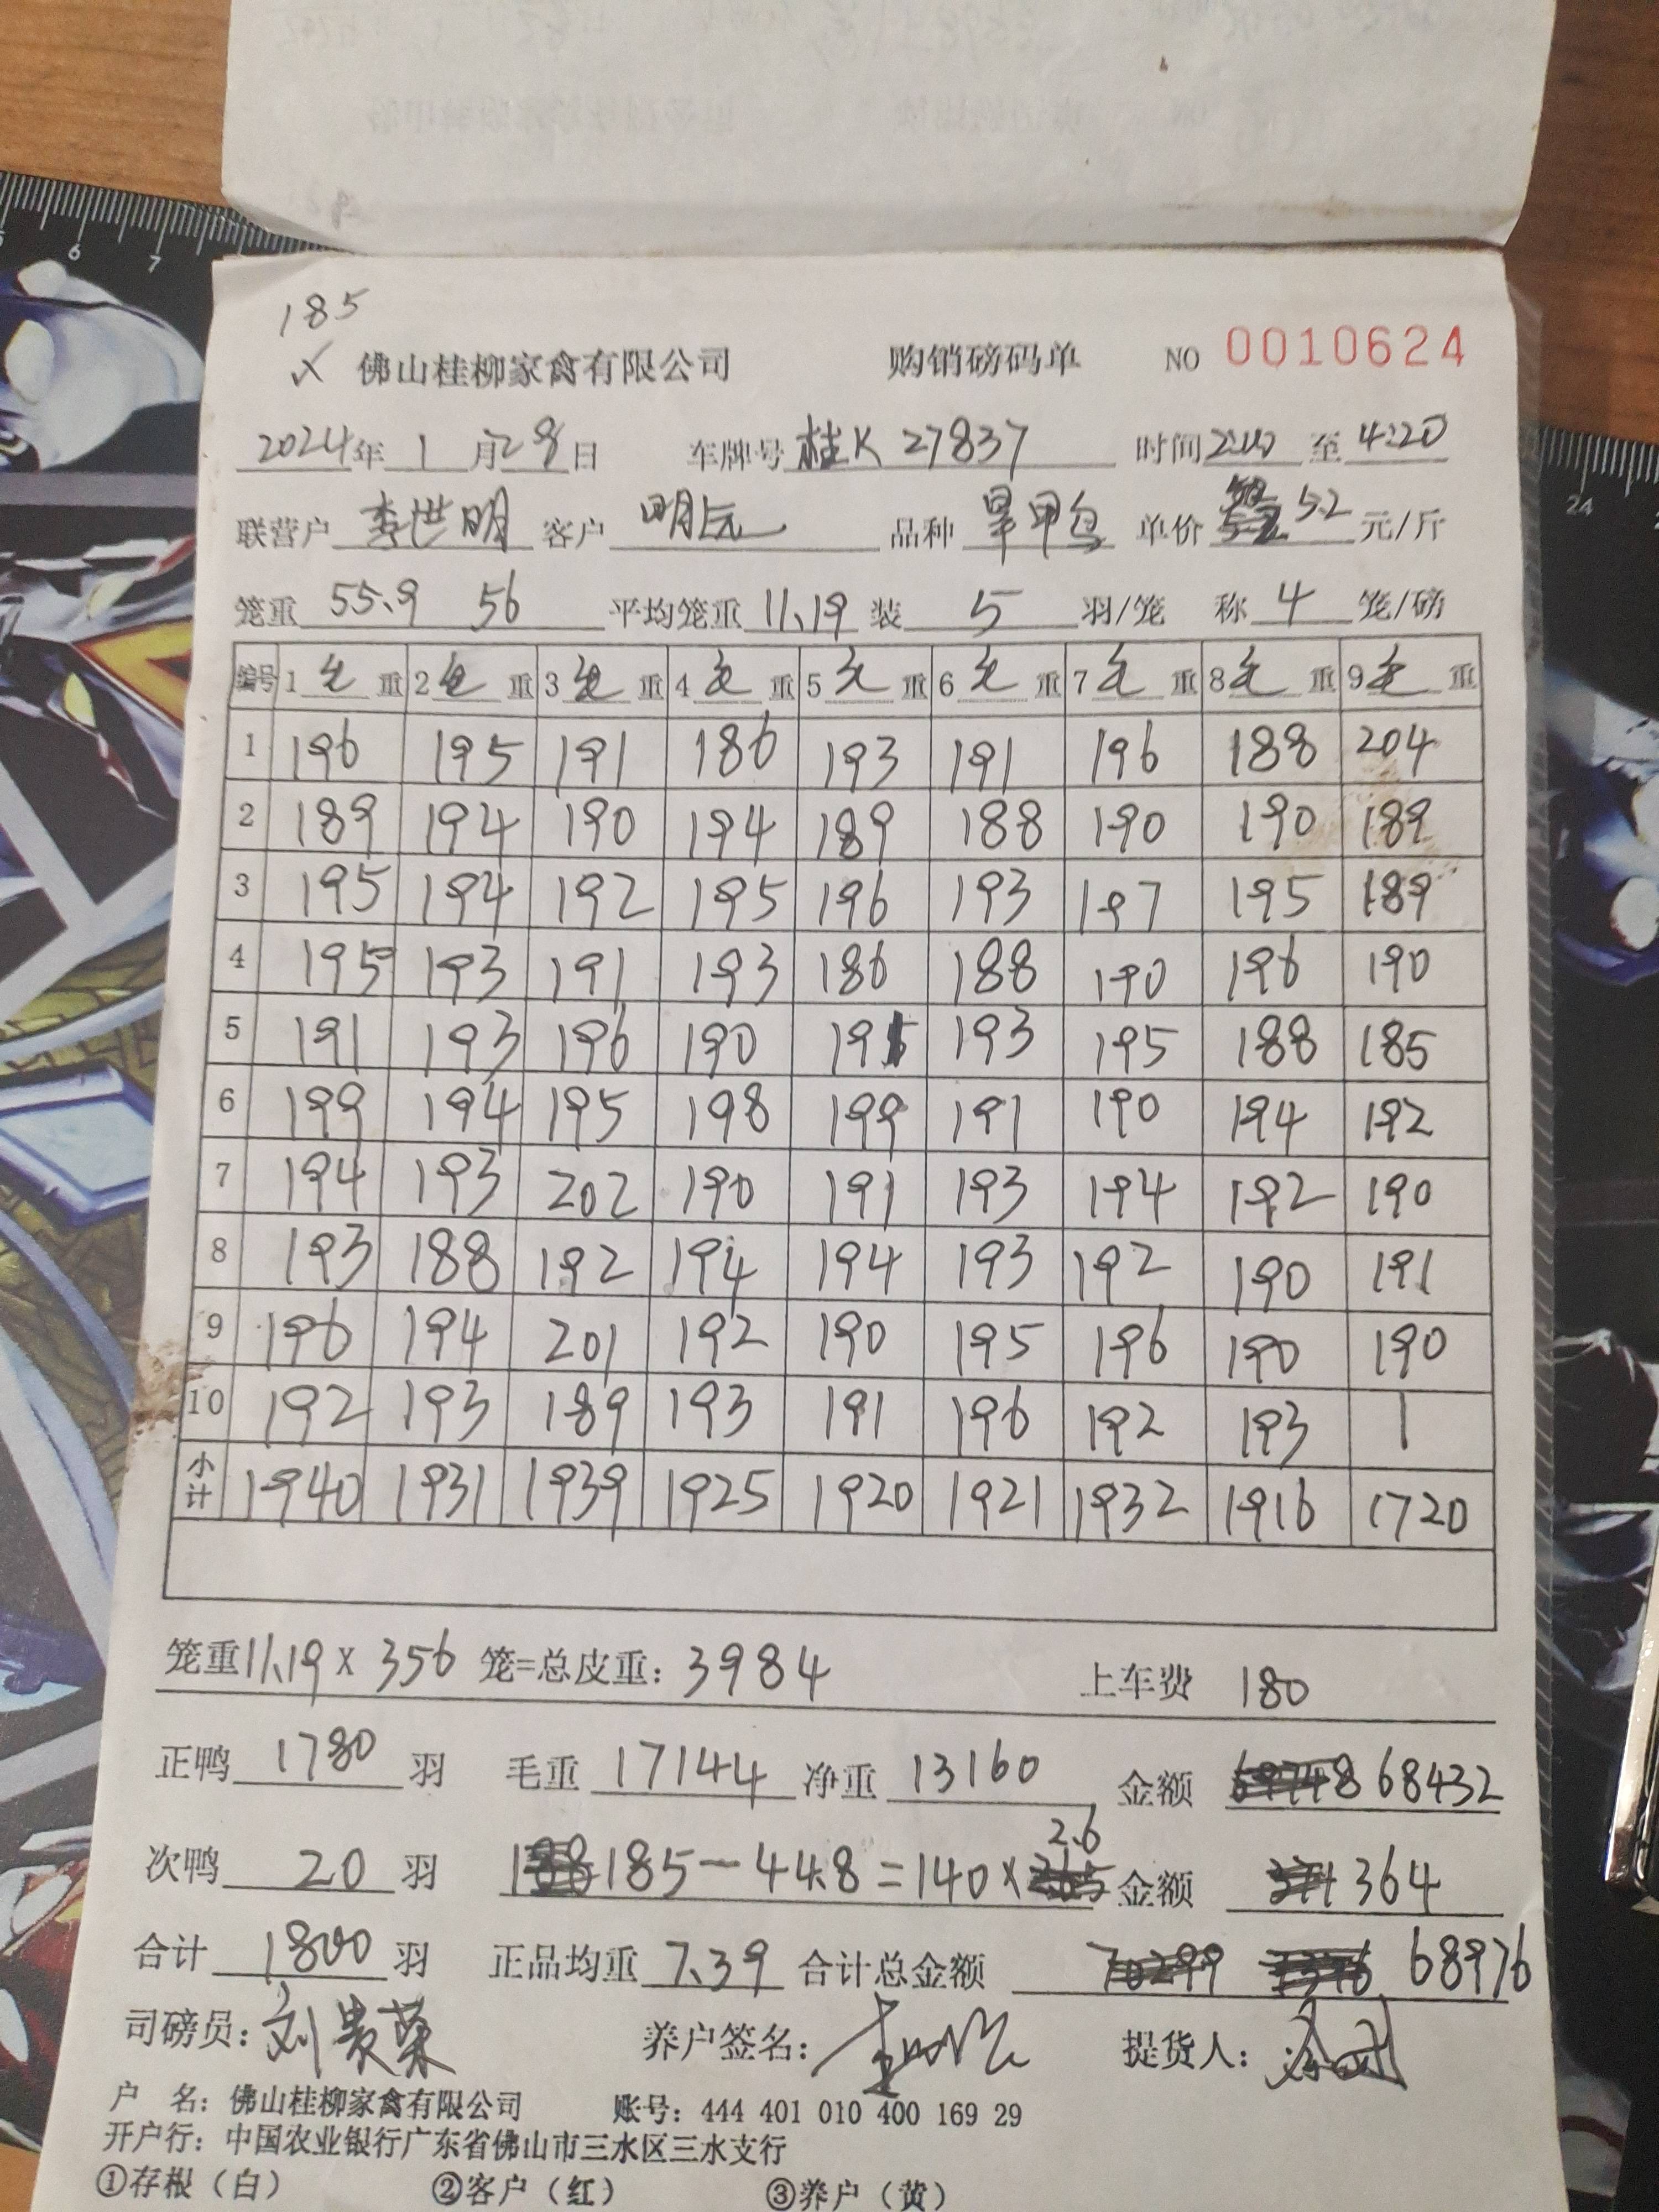 185
✓ 佛山桂柳家禽有限公司 购销磅码单 NO 0010624
2024年 1 月 28 日 车牌号 桂K 27837 时间 2:40 至 4:20
联营户 李世明 客户 明记 品种 旱甲鸟 单价 5.2 元/斤
笼重 55.9 56 平均笼重 11.19 装 5 羽/笼 称 4 笼/磅
编号 1 毛 重 2 毛 重 3 毛 重 4 毛 重 5 毛 重 6 毛 重 7 毛 重 8 毛 重 9 毛 重
1 196 195 191 186 193 191 196 188 204
2 189 194 190 194 189 188 190 190 189
3 195 194 192 195 196 193 197 195 189
4 195 193 191 193 186 188 190 196 190
5 191 193 196 190 191 193 195 188 185
6 199 194 195 198 199 191 190 194 192
7 194 193 202 190 191 193 194 192 190
8 193 188 192 194 194 193 192 190 191
9 196 194 201 192 190 195 196 190 190
10 192 193 189 193 191 196 192 193 1
小计 1940 1931 1939 1925 1920 1921 1932 1916 1720
笼重 11.19 x 356 笼=总皮重: 3984 上车费 180
正鸭 1780 羽 毛重 17144 净重 13160 金额 68432
次鸭 20 羽 185-44.8=140× 2.6 金额 364
合计 1800 羽 正品均重 7.39 合计总金额 68976
司磅员: 刘贵荣 养户签名: 提货人:
户 名: 佛山桂柳家禽有限公司 账号: 444 401 010 400 169 29
开户行: 中国农业银行广东省佛山市三水区三水支行
①存根（白） ②客户（红） ③养户（黄）